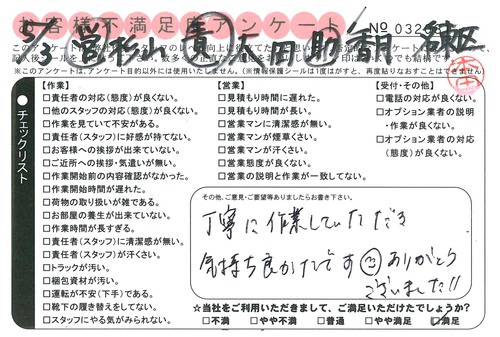 お客様不満足度アンケート
No 032
※このアンケートは、アンケート目的以外には使用いたしません。(※情報保護シールは1度はがすと、再度貼りなおすことはできません)
チェックリスト
【作業】
□責任者の対応(態度)が良くない。
□他のスタッフの対応(態度)が良くない。
□作業を見ていて不安がある。
□責任者(スタッフ)に好感が持てない。
□お客様への挨拶が出来ていない。
□ご近所への挨拶・気遣いが無い。
□作業開始前の内容確認がなかった。
□作業開始時間が遅れた。
□荷物の取り扱いが雑である。
□お部屋の養生が出来ていない。
□作業時間が長すぎる。
□責任者(スタッフ)に清潔感が無い。
□責任者(スタッフ)が汗くさい。
□トラックが汚い。
□梱包資材が汚い。
□運転が不安(下手)である。
□靴下の履き替えをしてない。
□スタッフにやる気がみられない。
【営業】
□見積もり時間に遅れた。
□見積もり時間が長い。
□営業マンに清潔感が無い。
□営業マンが煙草くさい。
□営業マンが汗くさい。
□営業態度が良くない。
□営業の説明と作業が一致してない。
【受付・その他】
□電話の対応が良くない。
□オプション業者の説明
・作業が良くない。
□オプション業者の対応
(態度)が良くない。
その他、ご意見・ご要望等ありましたらお書き下さい。
丁寧に作業していただき
気持ち良かったです ありがとう
ございました!!
☆当社をご利用いただきまして、ご満足いただけたでしょうか?
□不満 □やや不満 □普通 □やや満足 □満足